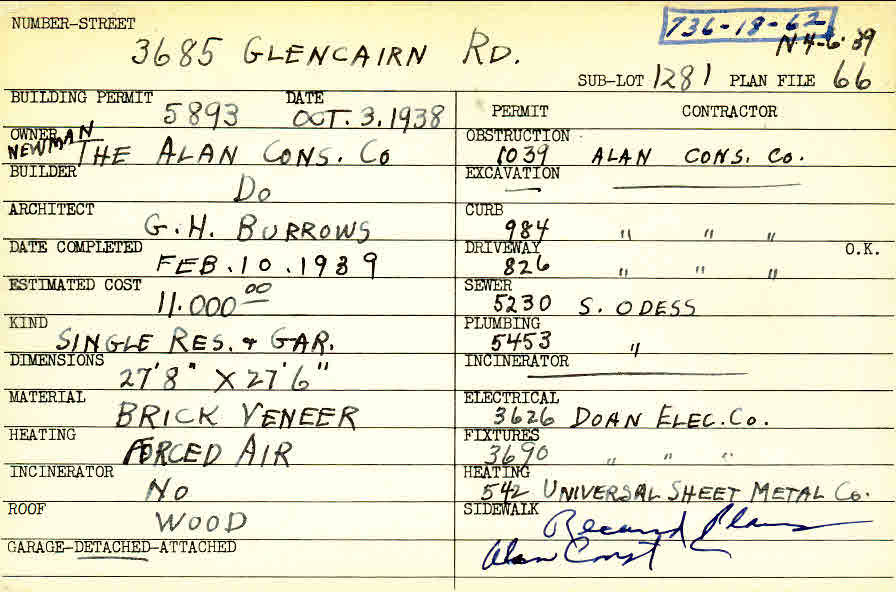 NUMBER-STREET
736-18-62
3685 GLENCAIRN RD.
N.4-6-39
SUB-LOT 1281 PLAN FILE 66
BUILDING PERMIT DATE
5893 OCT. 3. 1938
OWNER
NEWMAN THE ALAN CONS. CO
BUILDER
DO
ARCHITECT
G. H. BURROWS
DATE COMPLETED
FEB. 10. 1939
ESTIMATED COST
11.000 00
KIND
SINGLE RES. & GAR.
DIMENSIONS
27'8" X 27'6"
MATERIAL
BRICK VENEER
HEATING
FORCED AIR
INCINERATOR
NO
ROOF
WOOD
GARAGE-DETACHED-ATTACHED
PERMIT CONTRACTOR
OBSTRUCTION
1039 ALAN CONS. CO.
EXCAVATION
CURB
984 " " "
DRIVEWAY O.K.
826 " " "
SEWER
5230 S. ODESS
PLUMBING
5453 "
INCINERATOR
ELECTRICAL
3626 DOAN ELEC. CO.
FIXTURES
3690 " " "
HEATING
542 UNIVERSAL SHEET METAL CO.
SIDEWALK
Record Plans
Alan Const